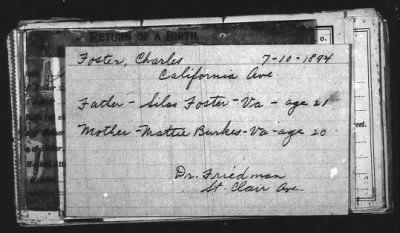 RETURN OF A BIRTH
Foster, Charles 7-10-1894
California Ave
Father - Silas Foster - Va - age 21
Mother - Mattie Burkes - Va - age 20
Dr. Friedman
St. Clair Ave.